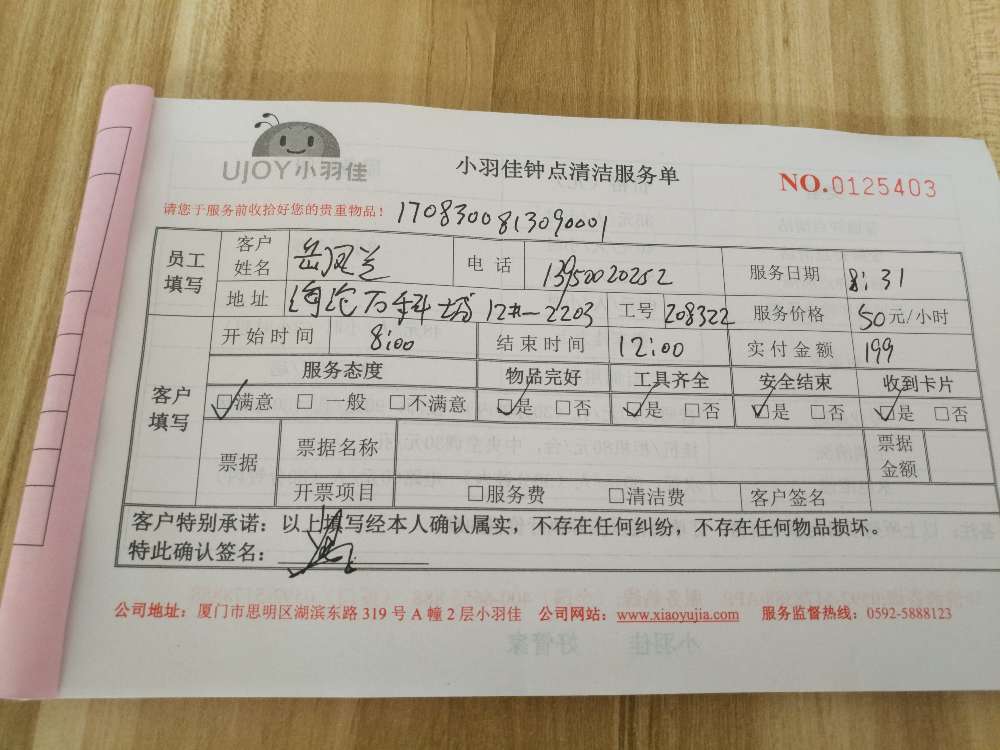 UJOY小羽佳
小羽佳钟点清洁服务单
NO.0125403
请您于服务前收拾好您的贵重物品! 1708300813090001
员工填写 客户姓名 岳 兰 电话 13950020252 服务日期 8:31
地址 万科城 12#-2203 工号 208322 服务价格 50元/小时
客户填写 开始时间 8:00 结束时间 12:00 实付金额 199
服务态度 物品完好 工具齐全 安全结束 收到卡片
☑满意 □一般 □不满意 ☑是 □否 ☑是 □否 ☑是 □否 ☑是 □否
票据 票据名称 票据金额
开票项目 □服务费 □清洁费 客户签名
客户特别承诺:以上填写经本人确认属实,不存在任何纠纷,不存在任何物品损坏。
特此确认签名:
公司地址:厦门市思明区湖滨东路 319 号 A 幢 2 层小羽佳 公司网站:www.xiaoyujia.com 服务监督热线:0592-5888123